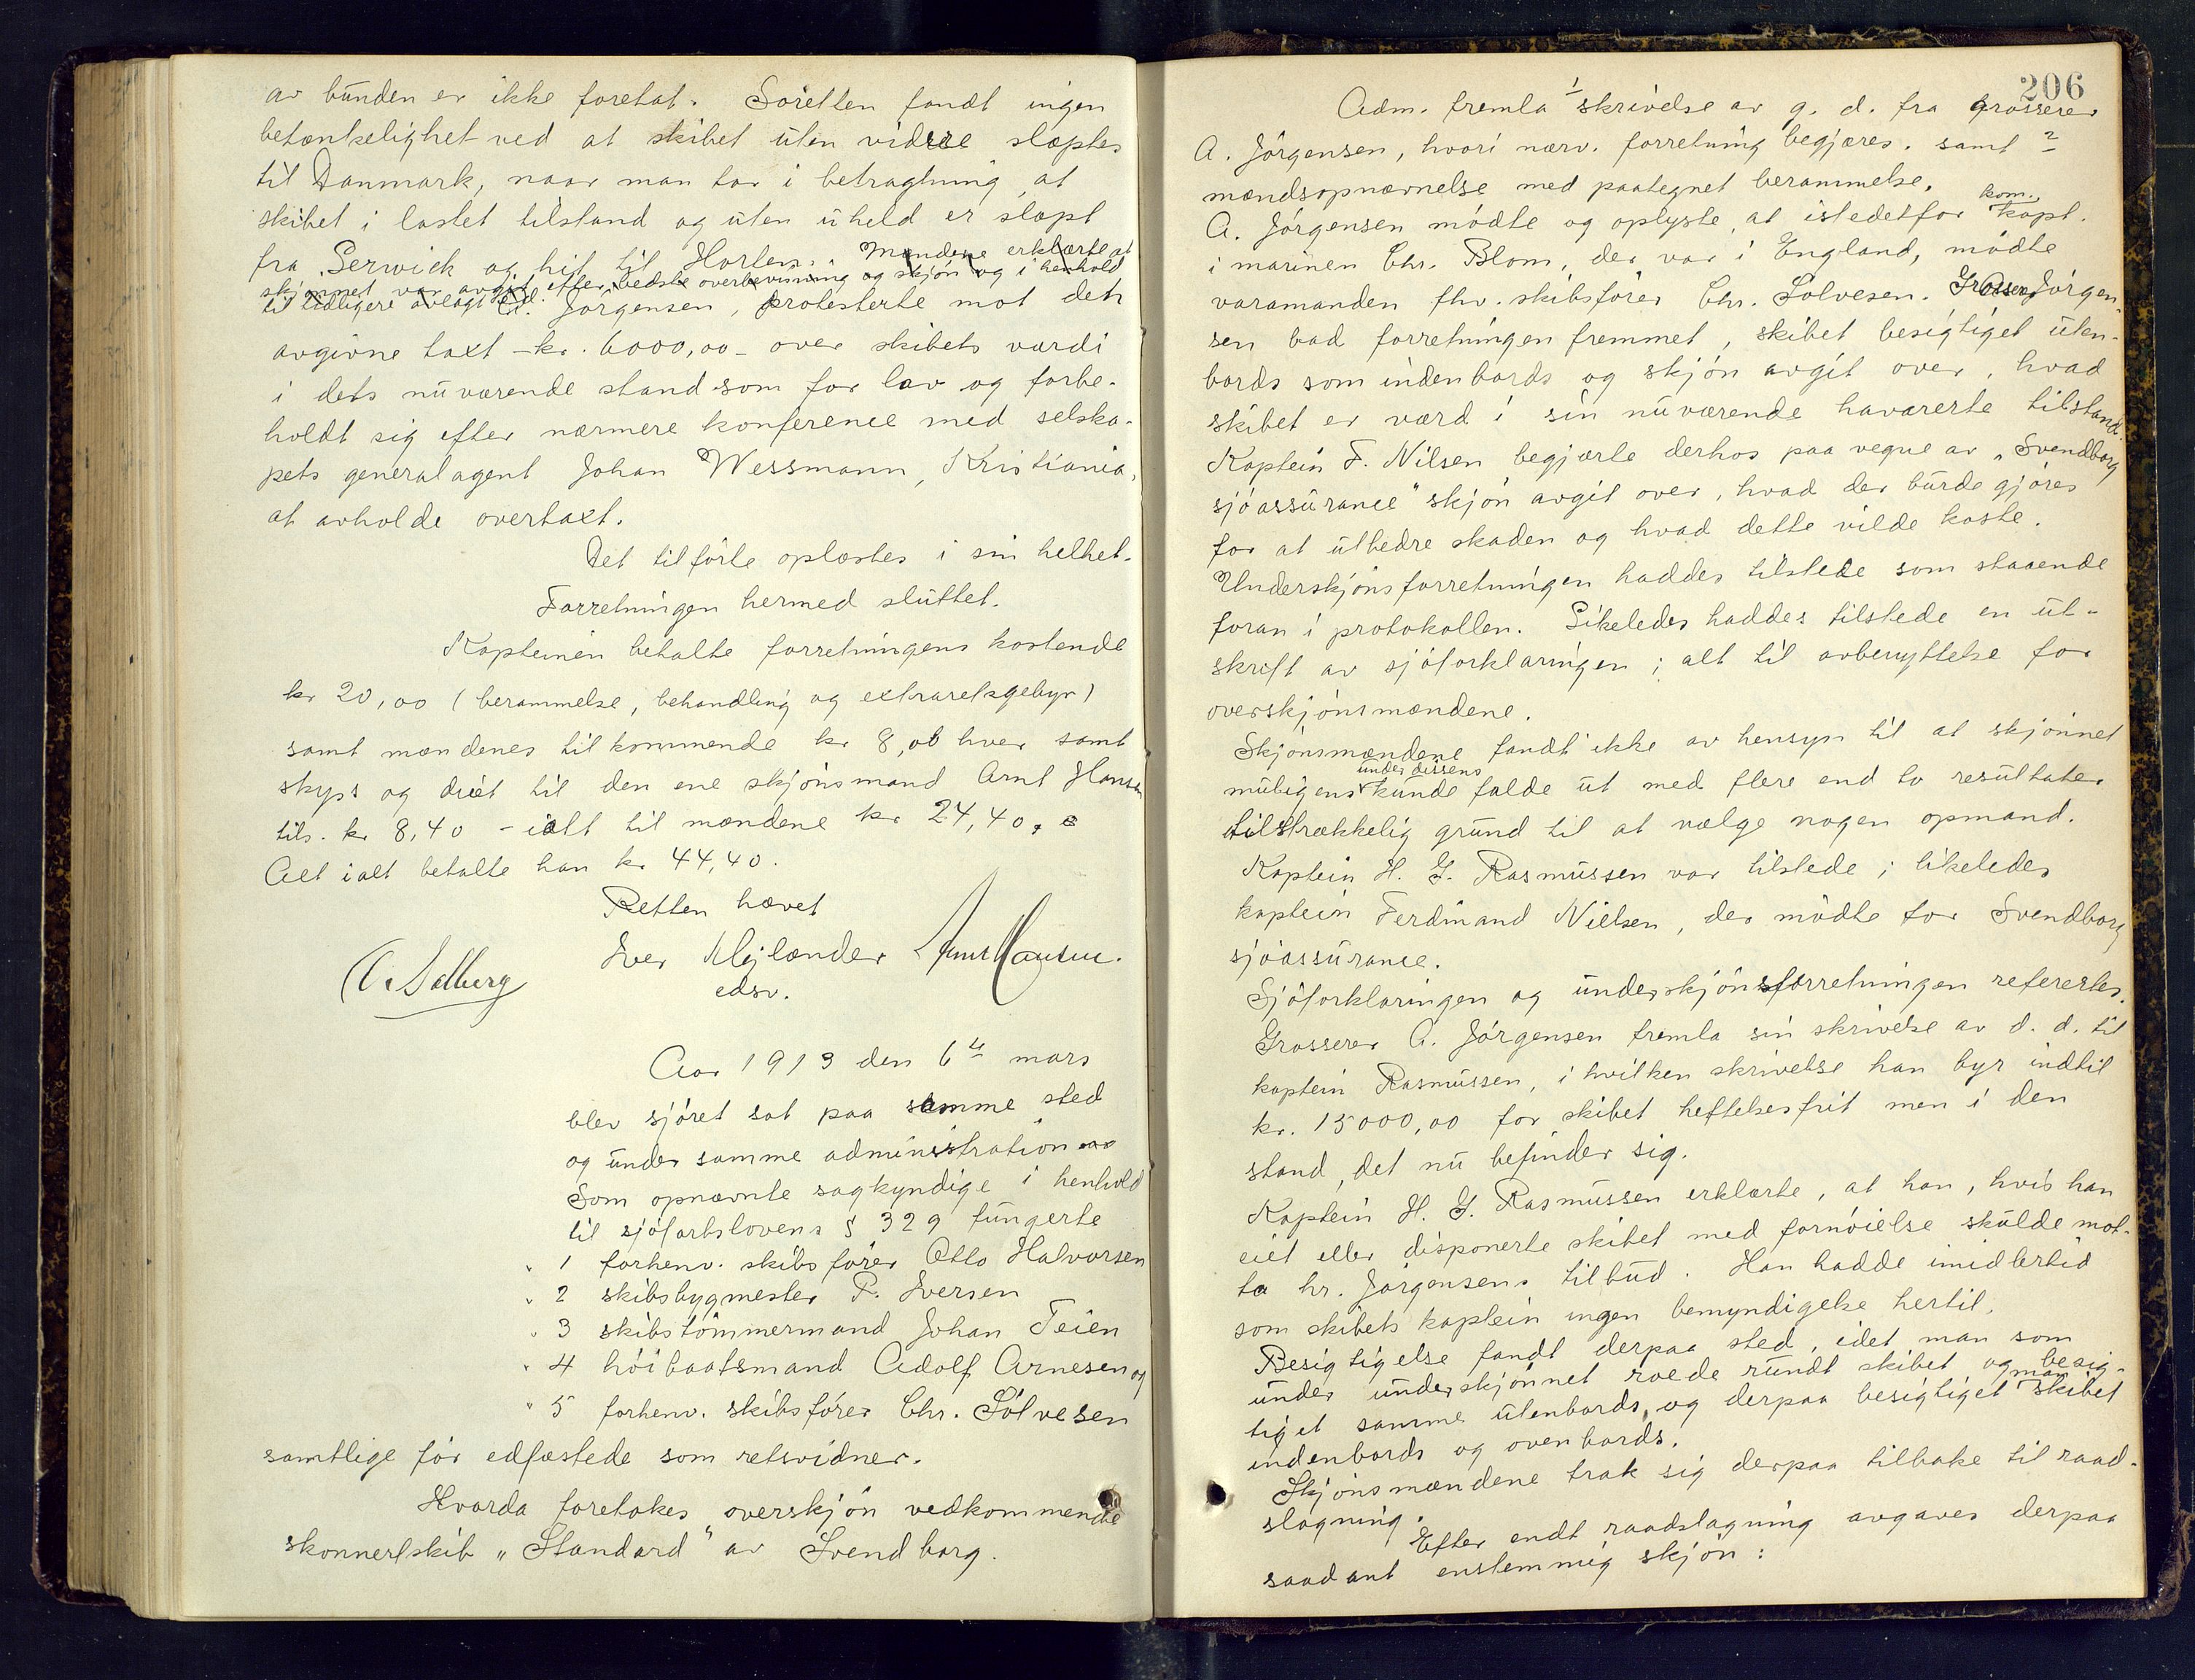 av bunden er ikke foretat. Søretten fandt ingen
betænkelighet ved at skibet uten videre slæptes
til Danmark, naar man tar i betragtning, at
skibet i lastet tilstand og uten uheld er slæpt
fra Lerwick og hit til Horten. Mændene erklærte at
skjønnet var avgit efter bedste overbevisning og skjøn og i henhold
til tidligere avlagt ed. Jørgensen, protesterte mot den
avgivne taxt – kr. 6000,00 – over skibets værdi
i dets nuværende stand som for lav og forbe-
holdt sig efter nærmere konference med selska-
pets generalagent Johan Wessmann, Kristiania,
at avholde overtaxt.
Det tilførte oplæstes i sin helhet.
Forretningen hermed sluttet.
Kapteinen betalte forretningens kostende
kr 20,00 (berammelse, behandling og extraretsgebyr)
samt mændenes tilkommende kr 8,00 hver samt
skyss og diæt til den ene skjønsmand Arnt Hansen
tils. kr 8,40 – ialt til mændene kr 24,40.
Alt ialt betalte han kr 44,40.
Retten hævet
C. Solberg Iver Mejlænder Arnt Hansen.
edsv.
Aar 1913 den 6te mars
blev sjøret sat paa samme sted
og under samme administration
Som opnævnte sagkyndige i henhold
til sjøfartslovens § 329 fungerte
" 1 forhenv. skibsfører Otto Halvorsen
" 2 skibsbygmester P. Iversen
" 3 skibstømmermand Johan Teien
" 4 høibaatsmand Adolf Arnesen og
" 5 forhenv. skibsfører Chr. Sølvesen
samtlige før edfæstede som retsvidner.
Hvorda foretokes overskjøn vedkommende
skonnertskib "Standard" av Svendborg.
206
Adm. fremla 1 skrivelse av g. d. fra grosserer
A. Jørgensen, hvori nærv. forretning begjæres, samt 2
mændsopnævnelse med paategnet berammelse.
A. Jørgensen mødte og oplyste, at istedetfor kom. kapt.
i marinen Chr. Blom, der var i England, mødte
varamanden fhv. skibsfører Chr. Sølvesen. Grosserer Jørgen-
sen bad forretningen fremmet, skibet besigtiget uten-
bords som indenbords og skjøn avgit over, hvad
skibet er værd i sin nuværende havarerte tilstand.
Kaptein F. Nilsen begjærte derhos paa vegne av "Svendborg
sjøassurance" skjøn avgit over, hvad der burde gjøres
for at utbedre skaden og hvad dette vilde koste.
Underskjønsforretningen haddes tilstede som staaende
foran i protokollen. Likeledes haddes tilstede en ut-
skrift av sjøforklaringen; alt til avbenyttelse for
overskjønsmændene.
Skjønsmændene fandt ikke av hensyn til at skjønnet
muligens under dissens kunde falde ut med flere end to resultater
tilstrækkelig grund til at vælge nogen opmand.
Kaptein H. G. Rasmussen var tilstede; likeledes
kaptein Ferdinand Nielsen, der mødte for Svendborg
sjøassurance.
Sjøforklaringen og underskjønsforretningen refertes.
Grosserer A. Jørgensen fremla sin skrivelse av d. d. til
kaptein Rasmussen, i hvilken skrivelse han byr indtil
kr. 15000,00 for skibet heftelsesfrit men i den
stand, det nu befinder sig.
Kaptein H. G. Rasmussen erklærte, at han, hvis han
eiet eller disponerte skibet med fornøielse skulde mot-
ta hr. Jørgensens tilbud. Han hadde imidlertid
som skibets kaptein ingen bemyndigelse hertil.
Besigtigelse fandt derpaa sted, idet man som
under underskjønnet roede rundt skibet og besig-
tiget samme utenbords, og derpaa besigtiget man skibet
indenbords og ovenbords.
Skjønsmændene trak sig derpaa tilbake til raad-
slagning.
Efter endt raadslagning avgaves derpaa
saadant enstemmig skjøn: